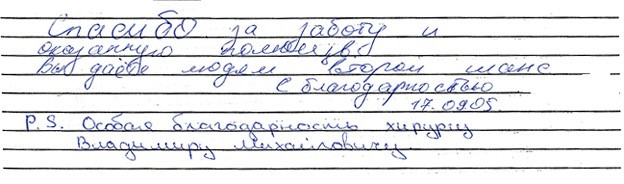 Спасибо за заботу и
оказанную помощь
Вы даёте людям второй шанс
С благодарностью
17.09.05
P.S. Особая благодарность хирургу
Владимиру Михайловичу.